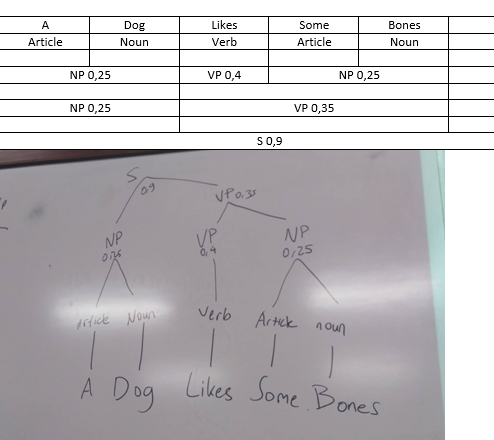 A Dog Likes Some Bones
Article Noun Verb Article Noun
NP 0,25 VP 0,4 NP 0,25
NP 0,25 VP 0,35
S 0,9
S
0,9
VP 0,35
NP VP NP
0,25 0,4 0,25
Article Noun Verb Article noun
A Dog Likes Some Bones